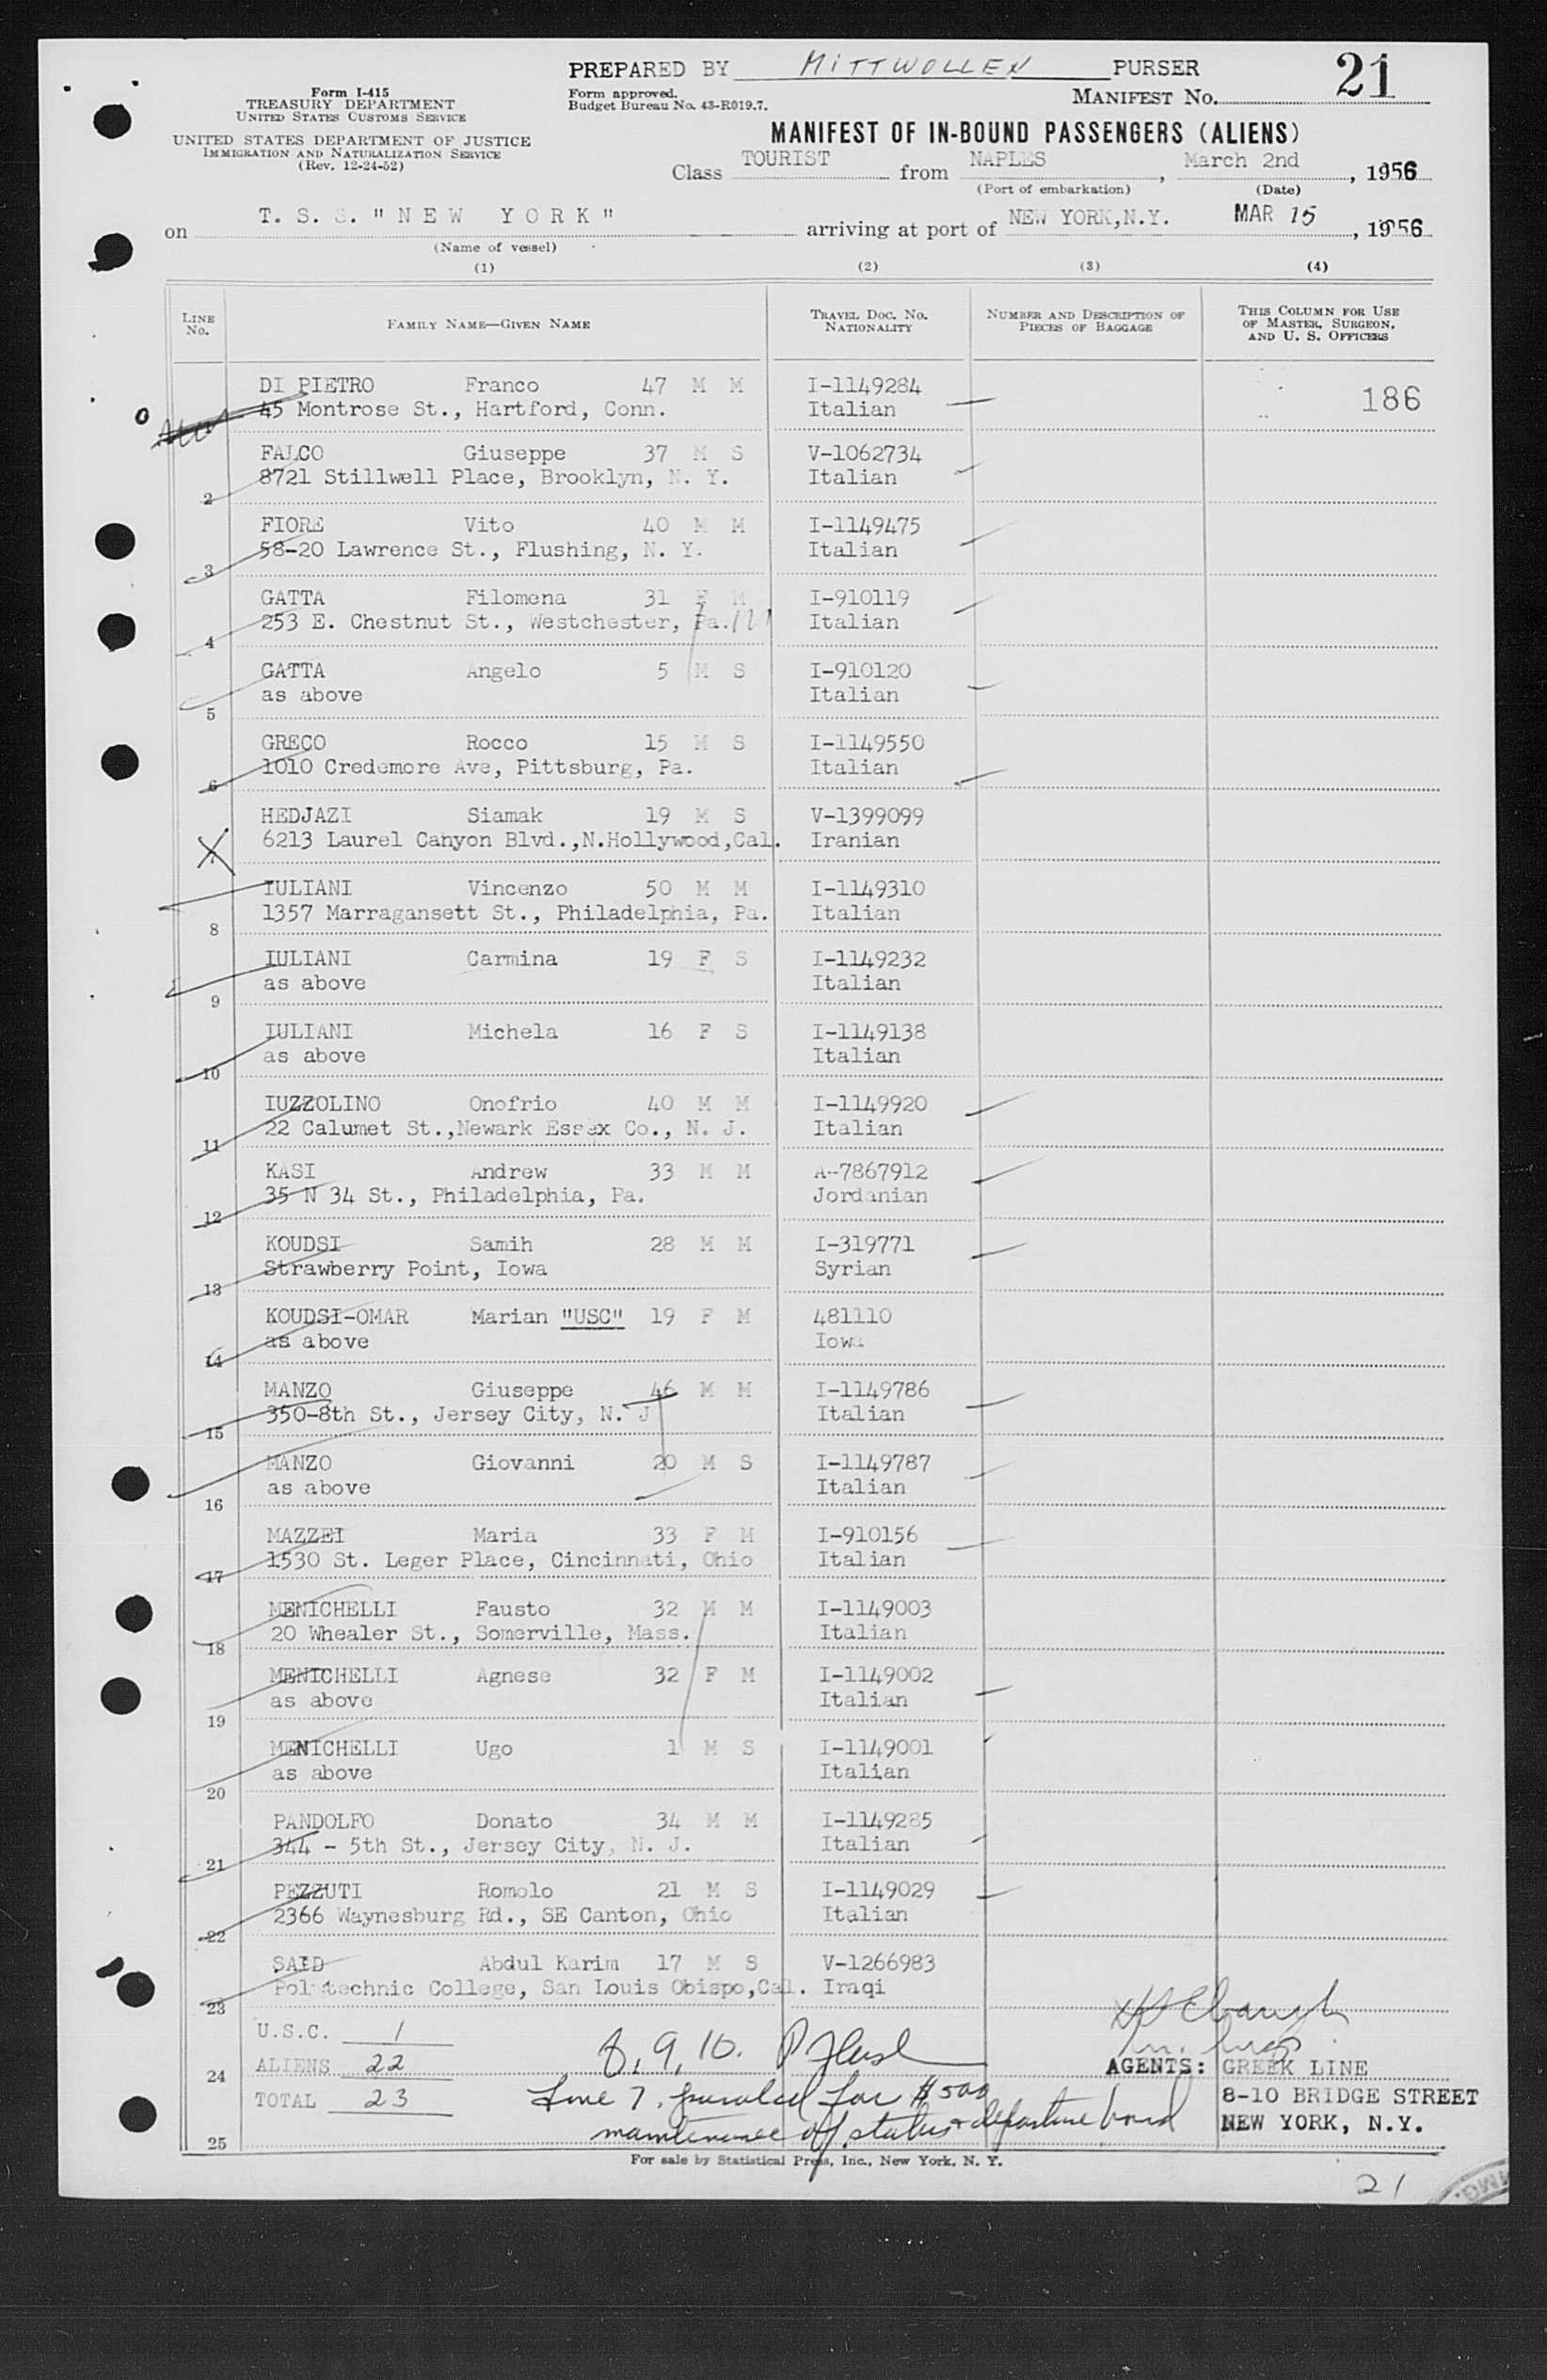 PREPARED BY MITTWOLLEN PURSER
21
Form I-415
TREASURY DEPARTMENT
UNITED STATES CUSTOMS SERVICE
UNITED STATES DEPARTMENT OF JUSTICE
IMMIGRATION AND NATURALIZATION SERVICE
(Rev. 12-24-52)
Form approved.
Budget Bureau No. 43-R019.7.
MANIFEST No.
MANIFEST OF IN-BOUND PASSENGERS (ALIENS)
Class TOURIST from NAPLES, March 2nd, 1956
(Port of embarkation) (Date)
on T. S. S. "NEW YORK" arriving at port of NEW YORK, N.Y. MAR 15, 1956
(Name of vessel)
(1) (2) (3) (4)
LINE No. FAMILY NAME—GIVEN NAME TRAVEL DOC. No. NATIONALITY NUMBER AND DESCRIPTION OF PIECES OF BAGGAGE THIS COLUMN FOR USE OF MASTER, SURGEON, AND U. S. OFFICERS
DI PIETRO Franco 47 M M I-1149284 186
45 Montrose St., Hartford, Conn. Italian
FALCO Giuseppe 37 M S V-1062734
2 8721 Stillwell Place, Brooklyn, N. Y. Italian
FIORE Vito 40 M M I-1149475
3 58-20 Lawrence St., Flushing, N. Y. Italian
GATTA Filomena 31 F M I-910119
4 253 E. Chestnut St., Westchester, Pa. Italian
GATTA Angelo 5 M S I-910120
5 as above Italian
GRECO Rocco 15 M S I-1149550
6 1010 Credemore Ave, Pittsburg, Pa. Italian
HEDJAZI Siamak 19 M S V-1399099
X 6213 Laurel Canyon Blvd.,N.Hollywood,Cal. Iranian
IULIANI Vincenzo 50 M M I-1149310
8 1357 Marragansett St., Philadelphia, Pa. Italian
IULIANI Carmina 19 F S I-1149232
9 as above Italian
IULIANI Michela 16 F S I-1149138
10 as above Italian
IUZZOLINO Onofrio 40 M M I-1149920
11 22 Calumet St.,Newark Essex Co., N. J. Italian
KASI Andrew 33 M M A-7867912
12 35 N 34 St., Philadelphia, Pa. Jordanian
KOUDSI Samih 28 M M I-319771
13 Strawberry Point, Iowa Syrian
KOUDSI-OMAR Marian "USC" 19 F M 481110
14 as above Iowa
MANZO Giuseppe 46 M M I-1149786
15 350-8th St., Jersey City, N. J Italian
MANZO Giovanni 20 M S I-1149787
16 as above Italian
MAZZEI Maria 33 F M I-910156
17 1530 St. Leger Place, Cincinnati, Ohio Italian
MENICHELLI Fausto 32 M M I-1149003
18 20 Whealer St., Somerville, Mass. Italian
MENICHELLI Agnese 32 F M I-1149002
19 as above Italian
MENICHELLI Ugo 1 M S I-1149001
20 as above Italian
PANDOLFO Donato 34 M M I-1149285
21 344 - 5th St., Jersey City, N. J. Italian
PEZZUTI Romolo 21 M S I-1149029
22 2366 Waynesburg Rd., SE Canton, Ohio Italian
SAID Abdul Karim 17 M S V-1266983
23 Polytechnic College, San Louis Obispo,Cal. Iraqi
U.S.C. 1
24 ALIENS 22 8, 9, 10. AGENTS: GREEK LINE
TOTAL 23 Line 7. paroled for $500 8-10 BRIDGE STREET
25 maintenance of status & departure bond NEW YORK, N.Y.
For sale by Statistical Press, Inc., New York, N. Y.
21